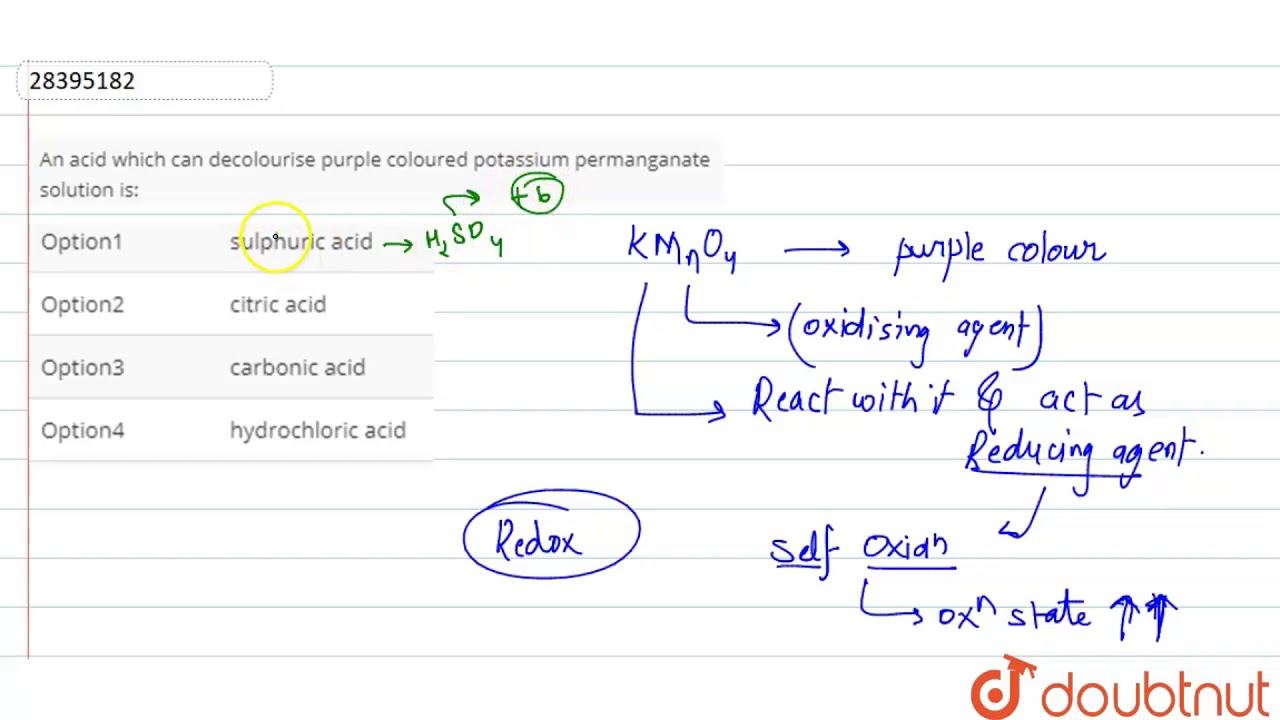 28395182
An acid which can decolourise purple coloured potassium permanganate
solution is:
+6
Option1 sulphuric acid → H₂SO₄
KMnO₄ → purple colour
Option2 citric acid
(oxidising agent)
Option3 carbonic acid
React with it & act as
Reducing agent.
Option4 hydrochloric acid
Redox
Self Oxiaⁿ
oxⁿ state ↑↑
doubtnut